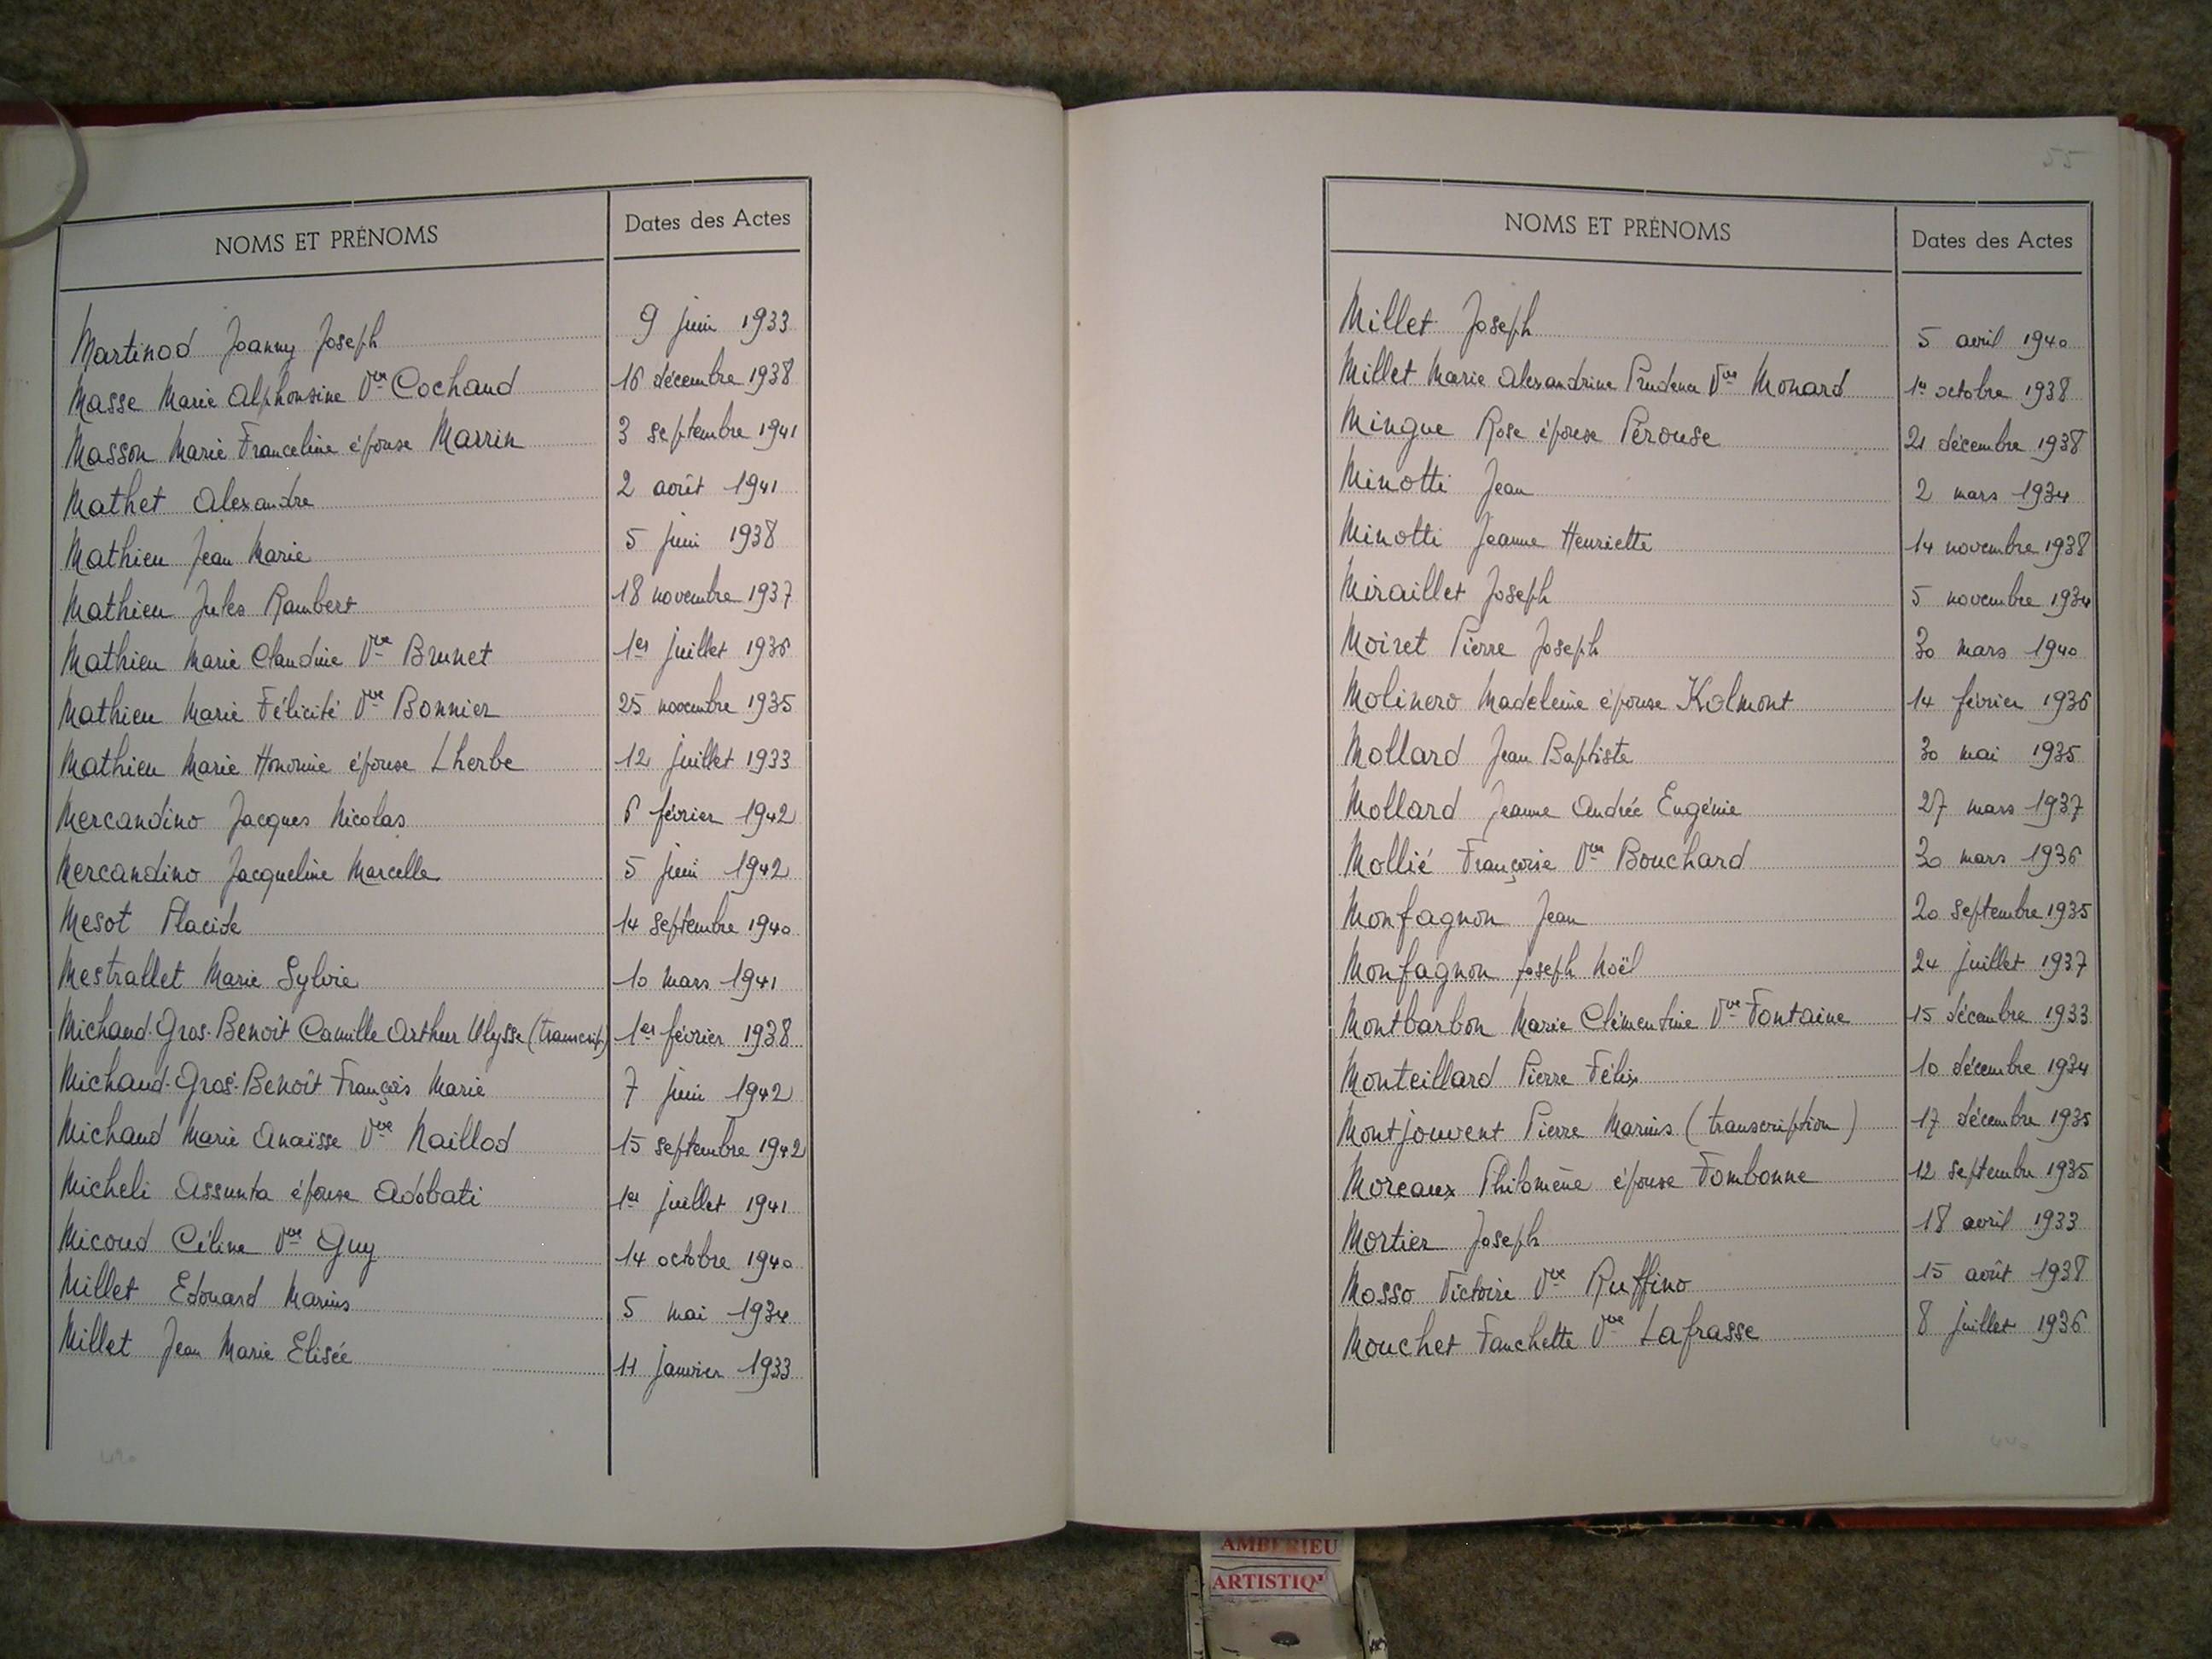 NOMS ET PRÉNOMS Dates des Actes
Martinod Joanny Joseph 9 juin 1933
Masse Marie Alphonsine Vve Cochaud 16 décembre 1938
Masson Marie Franceline épouse Marrin 3 septembre 1941
Mathet Alexandre 2 août 1941
Mathieu Jean Marie 5 juin 1938
Mathieu Jules Rambert 18 novembre 1937
Mathieu Marie Claudine Vve Brunet 1er juillet 1936
Mathieu Marie Félicité Vve Bonnier 25 novembre 1935
Mathieu Marie Honorine épouse Lherbe 12 juillet 1933
Mercandino Jacques Nicolas 6 février 1942
Mercandino Jacqueline Marcelle 5 juin 1942
Mesot Placide 14 septembre 1940
Mestrallet Marie Sylvie 10 mars 1941
Michaud-Gros-Benoit Camille Arthur Ulysse (transcript) 1er février 1938
Michaud-Gros-Benoît François Marie 7 juin 1942
Michaud Marie Anaïsse Vve Naillod 15 septembre 1942
Micheli Assunta épouse Adobati 1er juillet 1941
Micoud Céline Vve Guy 14 octobre 1940
Millet Edouard Marius 5 mai 1934
Millet Jean Marie Elisée 11 janvier 1933
55
NOMS ET PRÉNOMS Dates des Actes
Millet Joseph 5 avril 1940
Millet Marie Alexandrine Prudence Vve Monard 1er octobre 1938
Mingue Rose épouse Pérouse 21 décembre 1938
Minotti Jean 2 mars 1934
Minotti Jeanne Henriette 14 novembre 1938
Miraillet Joseph 5 novembre 1934
Moiret Pierre Joseph 30 mars 1940
Molinero Madeleine épouse Kolmont 14 février 1936
Mollard Jean Baptiste 30 mai 1935
Mollard Jeanne Andrée Eugénie 27 mars 1937
Mollié Françoise Vve Bouchard 30 mars 1936
Monfagnon Jean 20 septembre 1935
Monfagnon Joseph Noël 24 juillet 1937
Montbarbon Marie Clémentine Vve Fontaine 15 décembre 1933
Monteillard Pierre Félix 10 décembre 1934
Montjouvent Pierre Marius (transcription) 17 décembre 1935
Moreaux Philomène épouse Fombonne 12 septembre 1935
Mortier Joseph 18 avril 1933
Mosso Victoire Vve Ruffino 15 août 1938
Mouchet Fanchette Vve Lafrasse 8 juillet 1936
AMBERIEU
ARTISTIQ